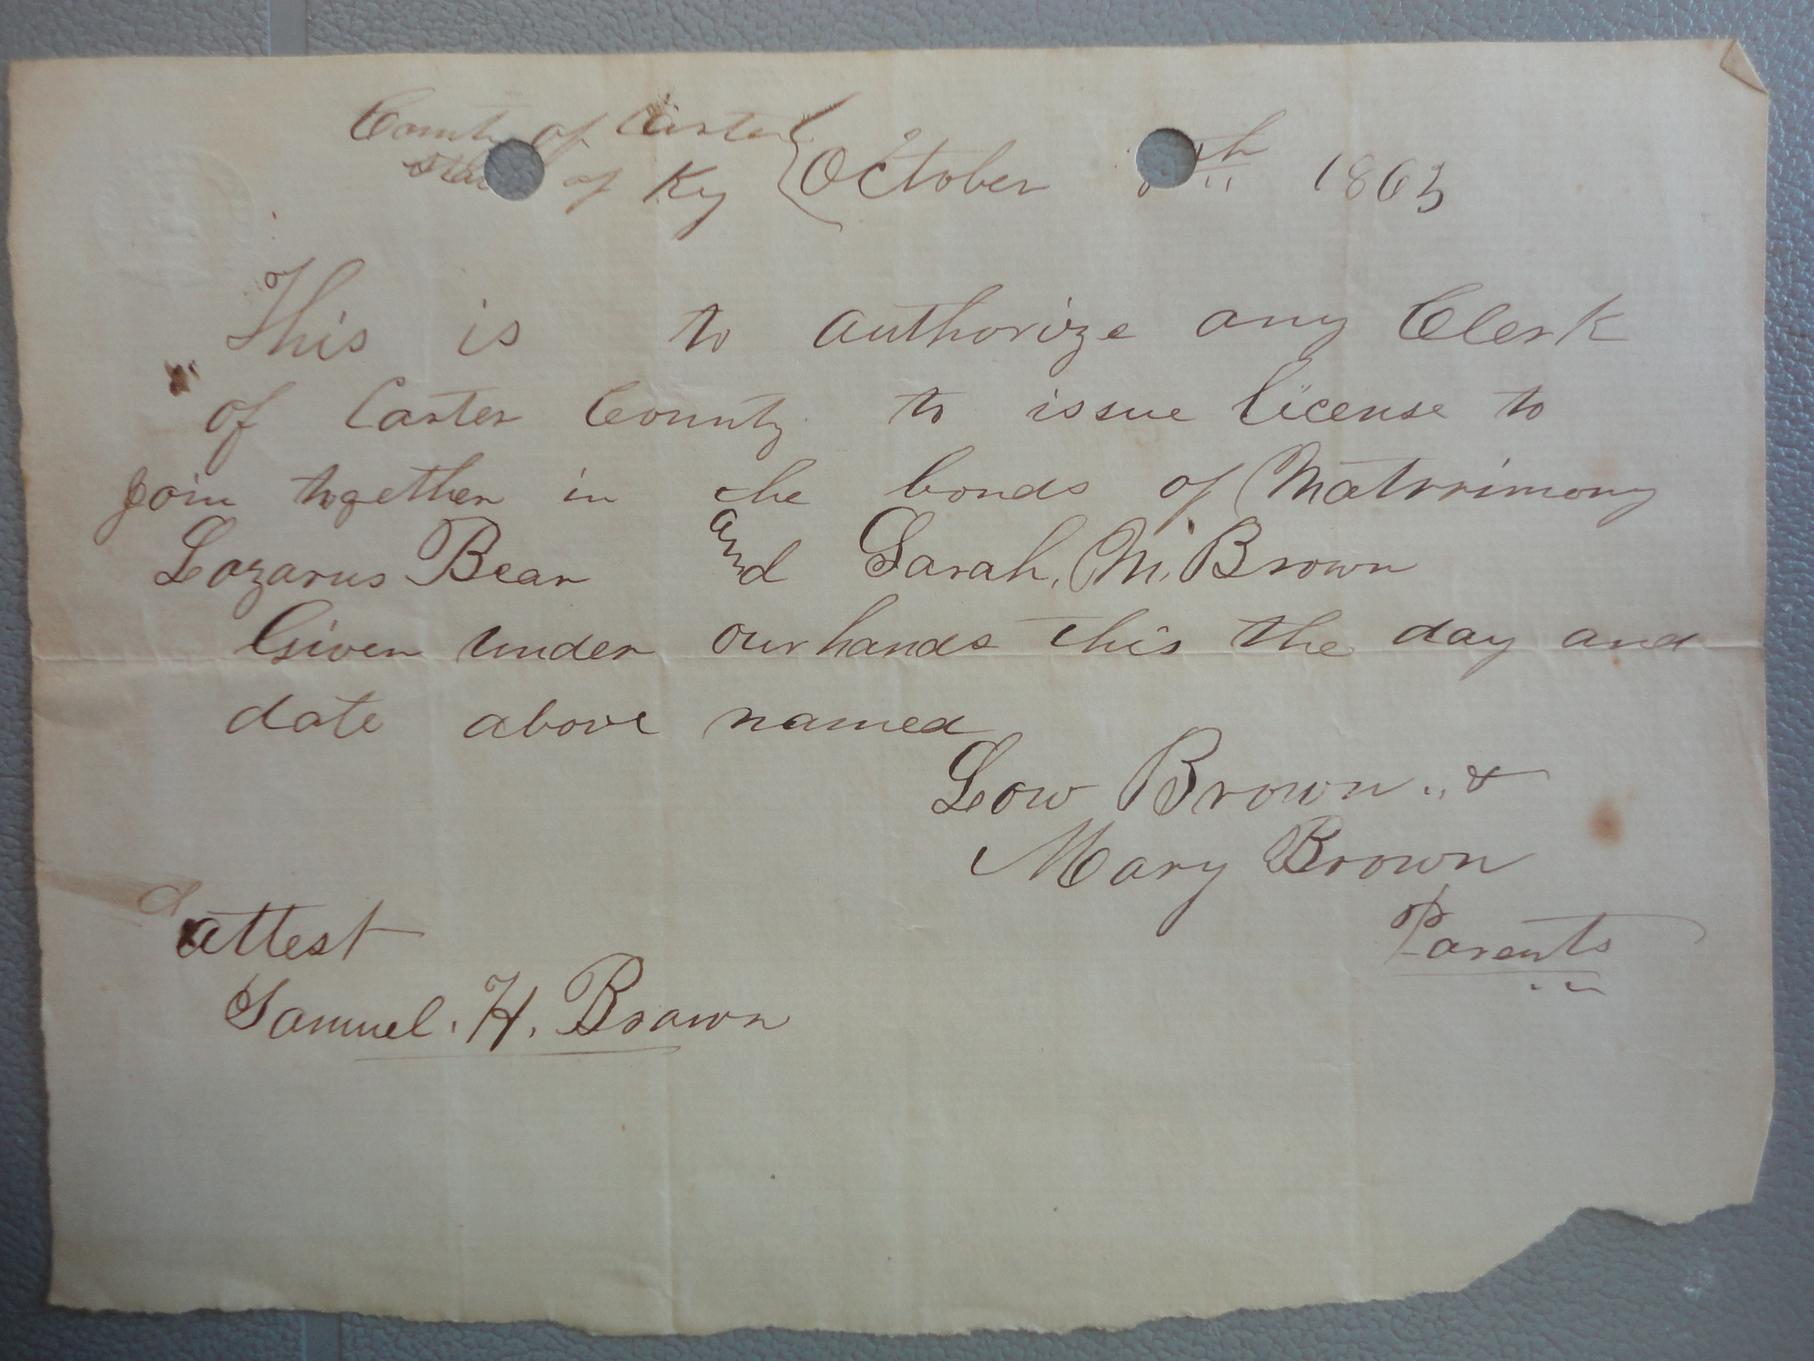 County of Carter
State of Ky October th 1863
This is to authorize any Clerk
of Carter County to issue license to
join together in the bonds of Matrimony
Lazarus Bear and Sarah, M. Brown
Given under our hands this the day and
date above named
Low Brown .. &
Mary Brown
Parents
attest
Samuel. H. Brown